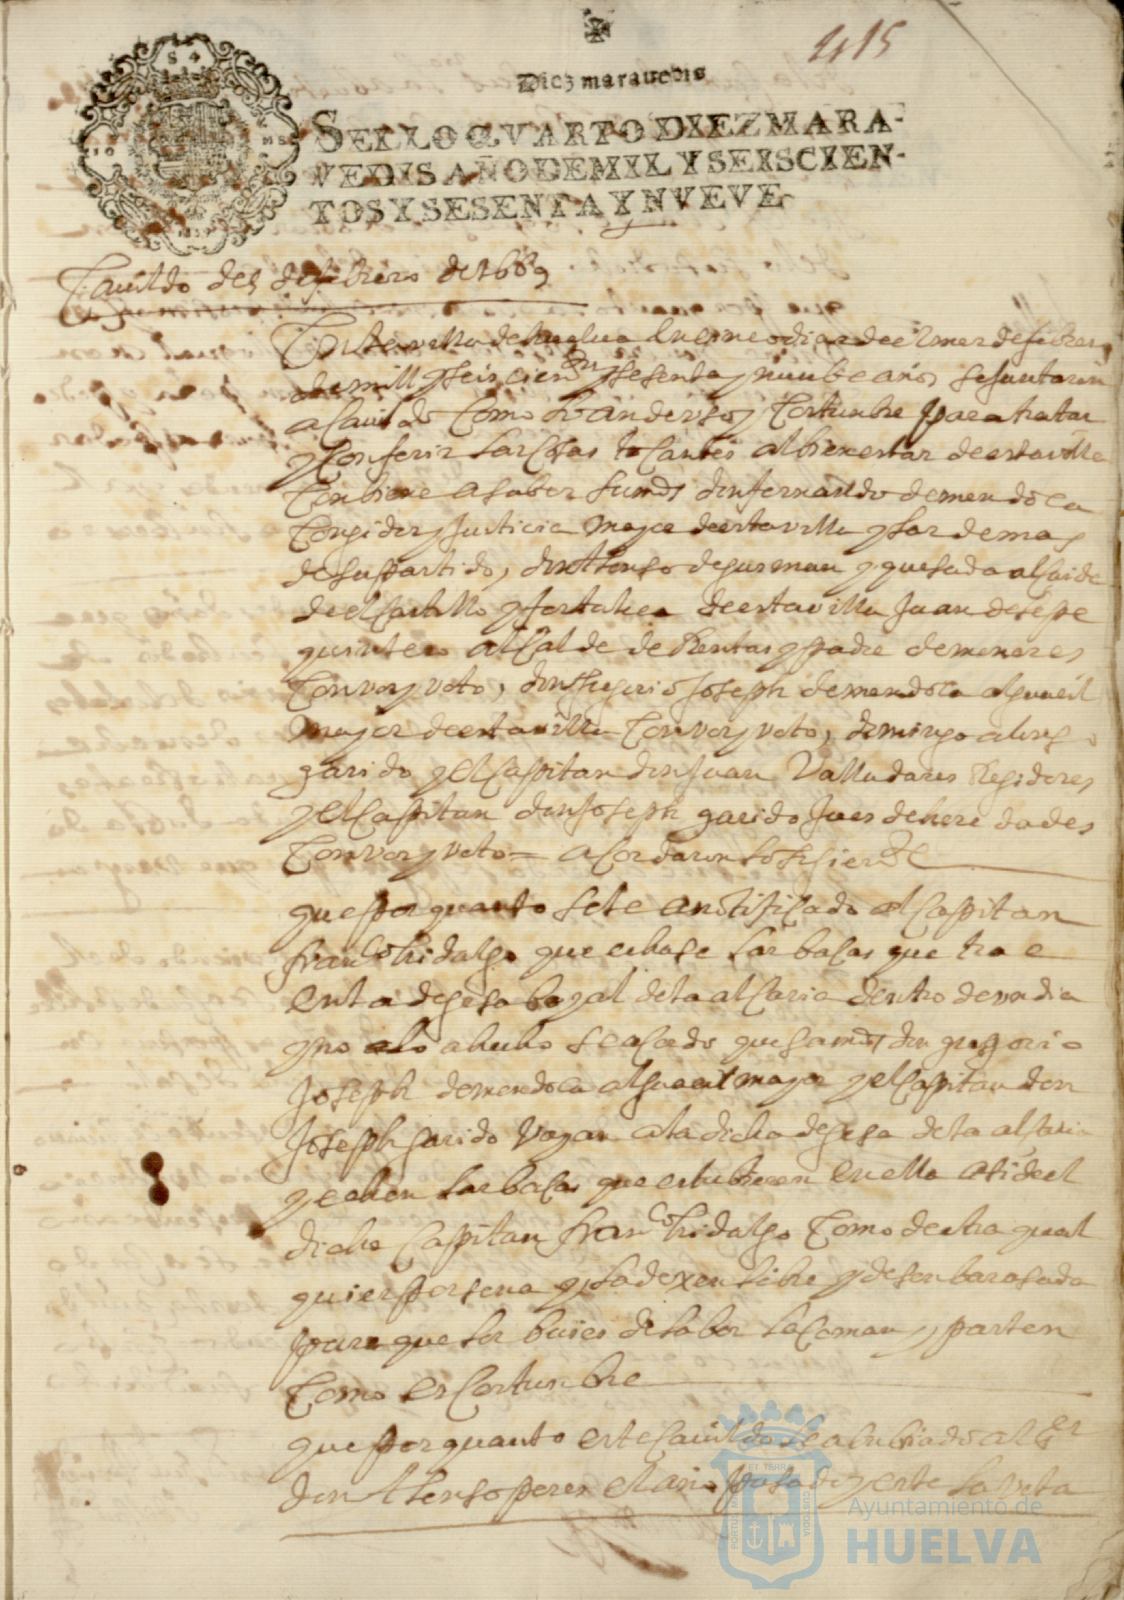 415
Diez maravedis
SELLO QVARTO DIEZ MARA-
VEDIS AÑO DE MIL Y SEISCIEN-
TOS Y SESENTA Y NVEVE
Cauildo de 5 de febrero de 1669
En la villa de huelua en sinco dias de el mes de febrero
de mill y seiscientos y sesenta y nuebe años se juntaron
a Cauildo Como lo an de vso y Costumbre para tratar
y Conferir las Cosas tocantes al bien estar de esta villa
Conbiene a saber don fernando de mendoca
Coregidor y Justicia Mayor de esta villa y las demas
de su partido, don Alonso de gusman y quesada alcaide
de el Castillo y fortalesa de esta villa Juan de Lepe
quintero alcalde de Rentas y padre de menores
Con vos y voto, don Joseph de mendoca alguasil
mayor de esta villa Con vos y voto, domingo alonso
garido y el Capitan don Juan Valladares Regidores
y el Capitan don Joseph garido Jues de heredades
Con vos y voto = acordaron lo siguiente
que por quanto se le a notificado al Capitan
franco hidalgo que echase las bacas que trae
en la degesa boyal de la alcaria dentro de un dia
y no lo a hecho se acordo que don gregorio
Joseph de mendoca alguasil mayor y el Capitan don
Joseph garido Vayan a la dicha degesa de la alcaria
y echen las bacas que estubieren en ella asi de el
dicho Capitan franco hidalgo Como de otra qual
quier persona y la dexen libre y desenbarasada
para que los buies de labor la Coman y pasten
Como es Costunbre
que por quanto este Cauildo se a al
don Alonso peres el año pasado y este la
Ayuntamiento de
HUELVA